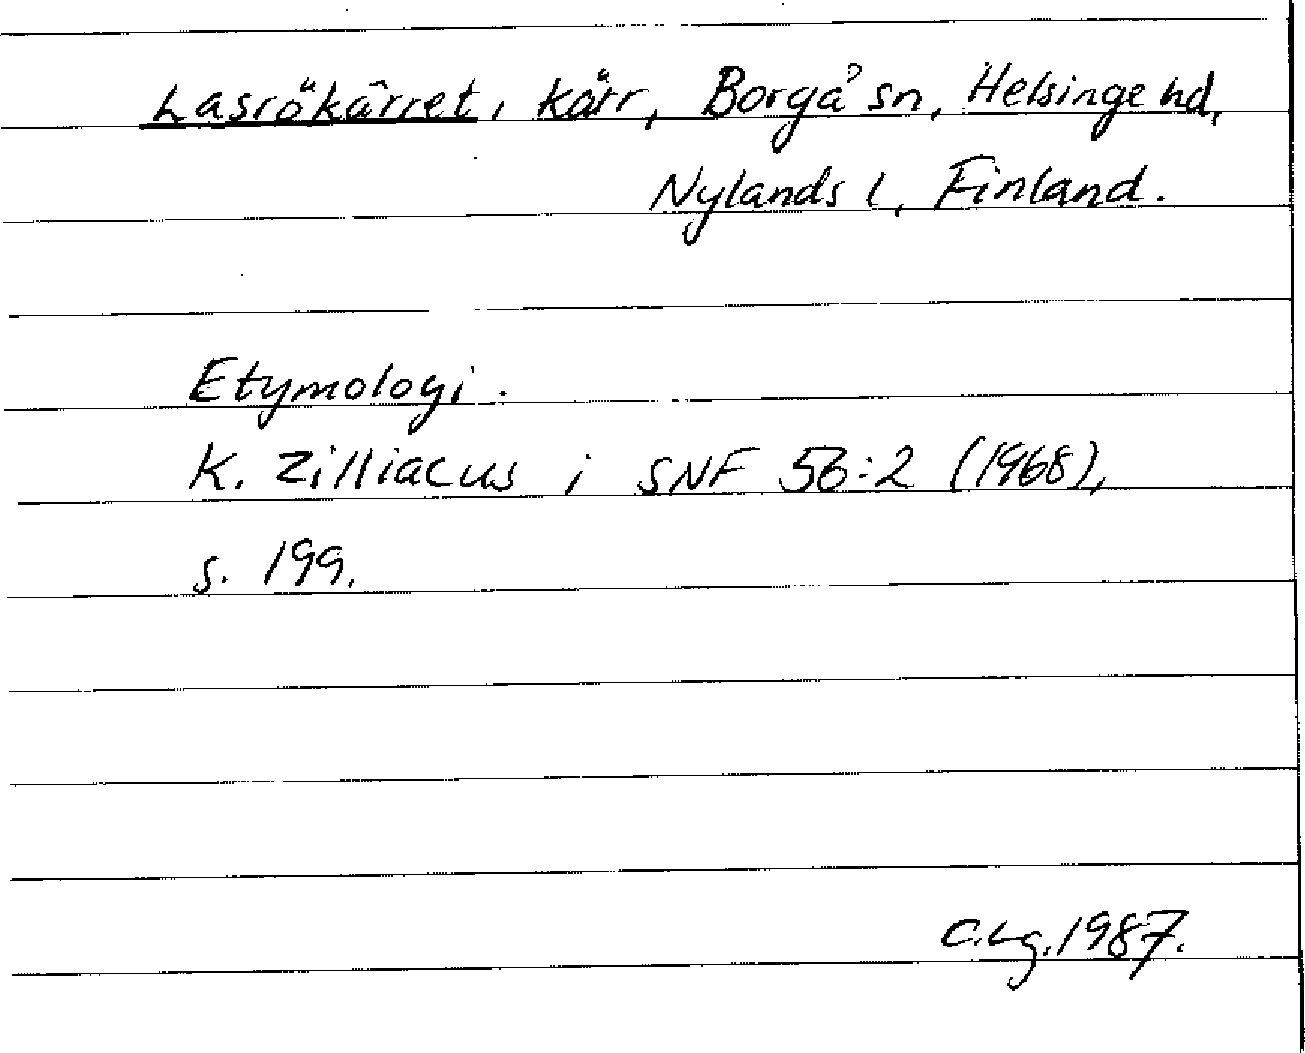 Lasrökärret, kärr, Borgå sn, Helsinge hd,
Nylands l, Finland.
Etymologi.
K. Zilliacus i SNF 56:2 (1968),
s. 199.
C.Lg.1987.